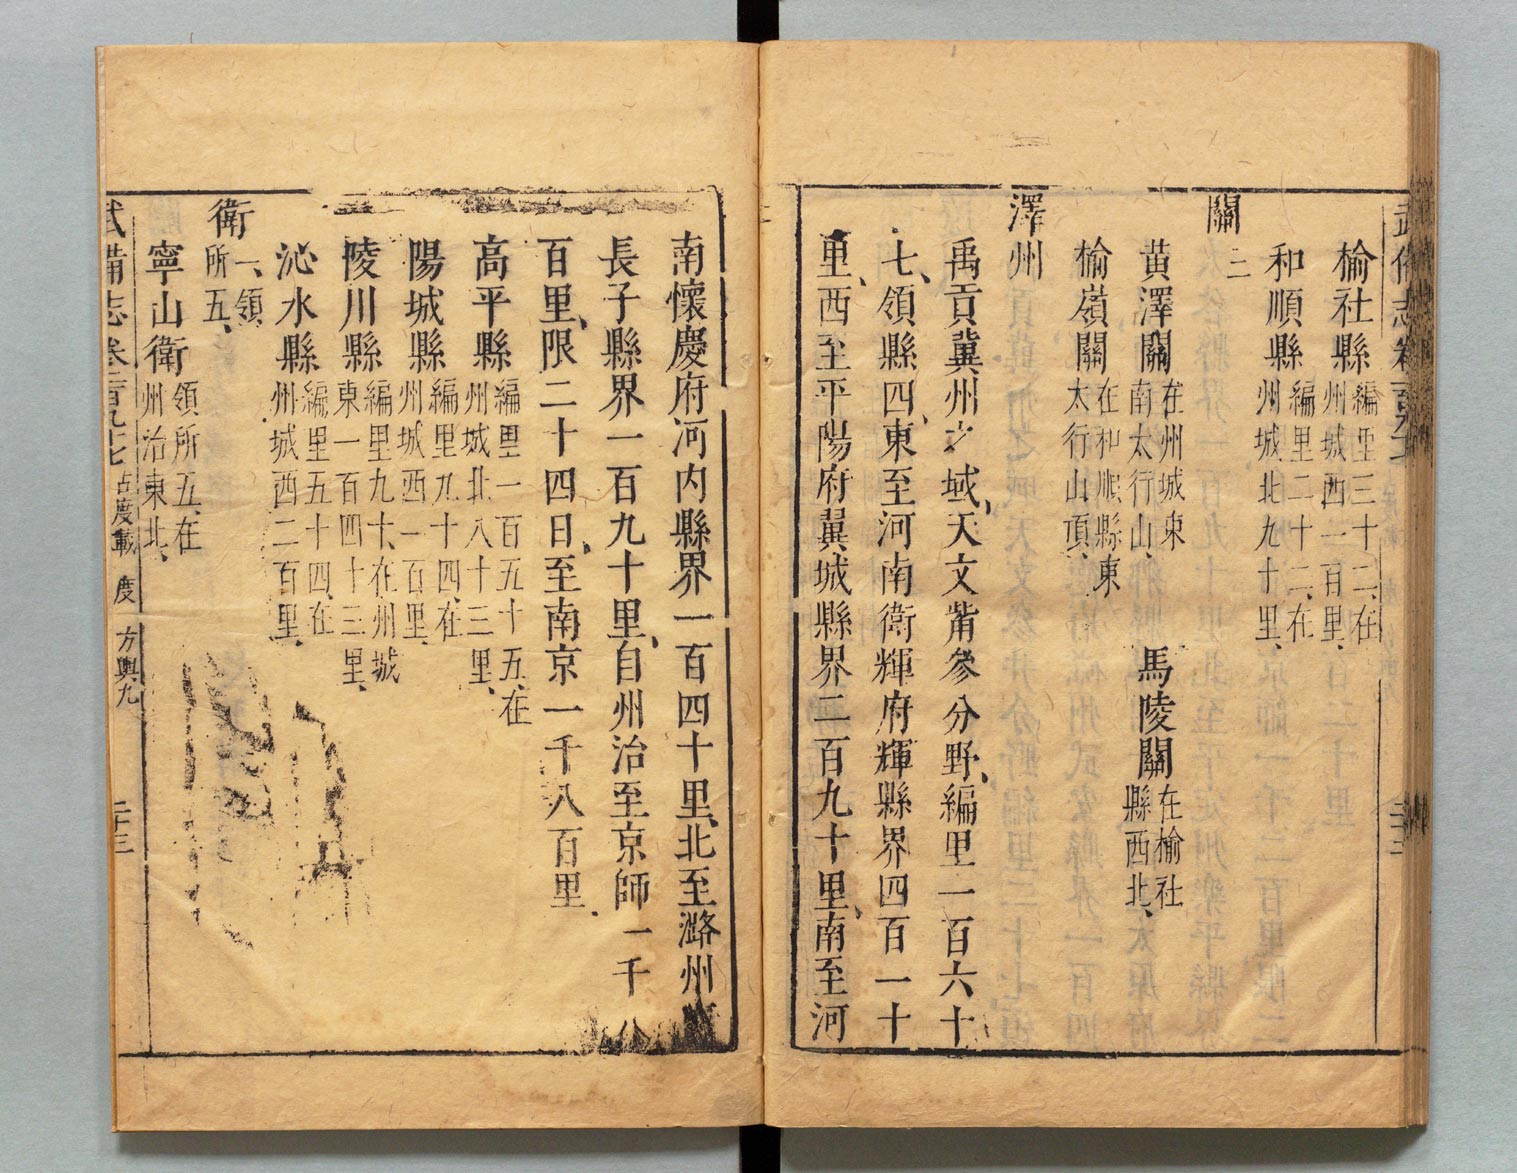 榆社縣編里三十二、在州城西一百里、
和順縣編里二十二、在州城北九十里、
關二
黃澤關在州城東南太行山、 馬陵關在榆社縣西北、
榆嶺關在和順縣東太行山頂、
澤州
禹貢冀州之域、天文觜參分野、編里一百六十
七、領縣四、東至河南衛輝府輝縣界四百一十
里、西至平陽府翼城縣界二百九十里、南至河
南懷慶府河內縣界一百四十里、北至潞州
長子縣界一百九十里、自州治至京師一千八
百里、限二十四日、至南京一千八百里、
高平縣編里一百五十五、在州城北八十三里、
陽城縣編里九十四、在州城西一百里、
陵川縣編里九十、在州城東一百四十三里、
沁水縣編里五十四、在州城西二百里、
衛一、領所五、
寧山衛領所五、在州治東北、
武備志 卷一百九十七 占度載 度 方輿九 二十三